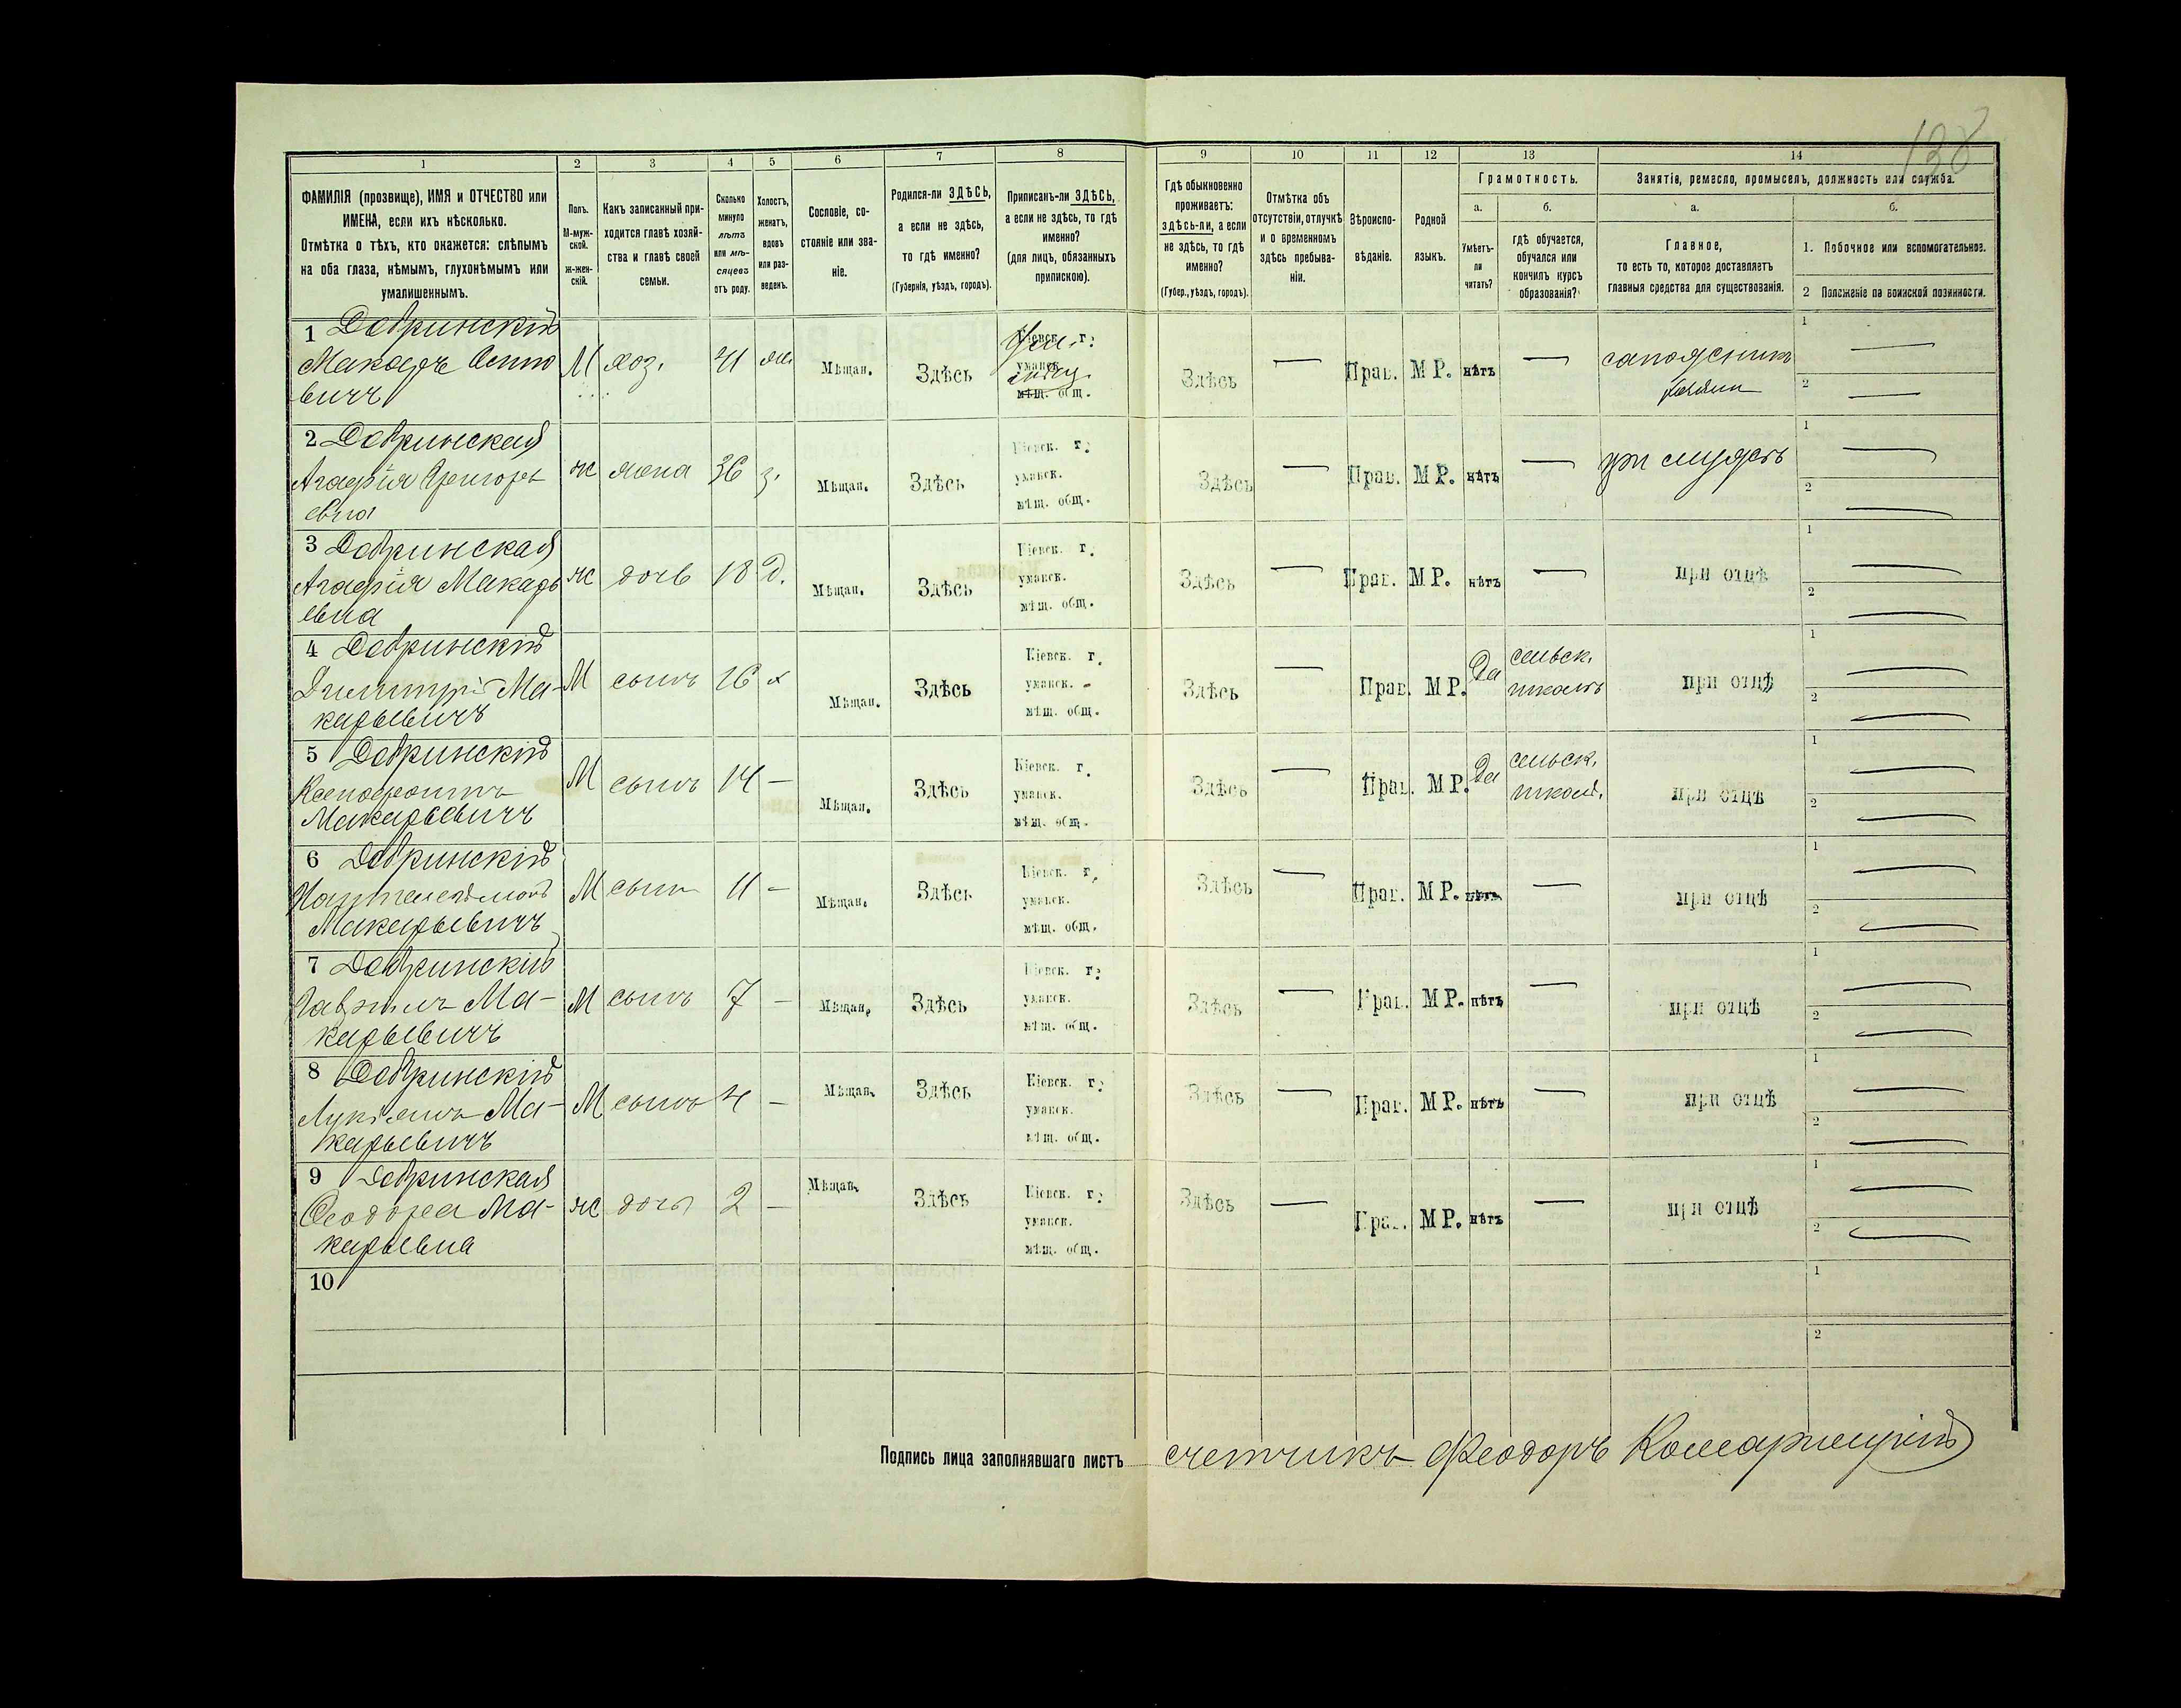 138
1 2 3 4 5 6 7 8 9 10 11 12 13 14
ФАМИЛІЯ (прозвище), ИМЯ и ОТЧЕСТВО или
ИМЕНА, если ихъ нѣсколько.
Отмѣтка о тѣхъ, кто окажется: слѣпымъ
на оба глаза, нѣмымъ, глухонѣмымъ или
умалишеннымъ.
Полъ.
М-муж-
ской.
ж-жен-
скій.
Какъ записанный при-
ходится главѣ хозяй-
ства и главѣ своей
семьи.
Сколько
минуло
лѣтъ
или мѣ-
сяцевъ
отъ роду.
Холостъ,
женатъ,
вдовъ
или раз-
веденъ.
Сословіе, со-
стояніе или зва-
ніе.
Родился-ли ЗДѢСЬ,
а если не здѣсь,
то гдѣ именно?
(Губернія, уѣздъ, городъ).
Приписанъ-ли ЗДѢСЬ,
а если не здѣсь, то гдѣ
именно?
(для лицъ, обязанныхъ
припискою).
Гдѣ обыкновенно
проживаетъ:
здѣсь-ли, а если
не здѣсь, то гдѣ
именно?
(Губер., уѣздъ, городъ).
Отмѣтка объ
отсутствіи, отлучкѣ
и о временномъ
здѣсь пребыва-
ніи.
Вѣроиспо-
вѣданіе.
Родной
языкъ.
Грамотность.
а.
Умѣетъ-
ли
читать?
б.
гдѣ обучается,
обучался или
кончилъ курсъ
образованія?
Занятіе, ремесло, промыселъ, должность или служба.
а.
Главное,
то есть то, которое доставляетъ
главныя средства для существованія.
б.
1. Побочное или вспомогательное.
2 Положеніе по воинской повинности.
1 Добринскій
Макаръ
вичъ
М хоз. 41 Мѣщан. Здѣсь
Кіевск. г.
уманск.
мѣщ. общ.
Здѣсь — Прав. МР. нѣтъ — сапожникъ
1 —
2 —
2 Добринская
Агафія Григорь
евна
ж жена 36 з. Мѣщан. Здѣсь
Кіевск. г.
уманск.
мѣщ. общ.
Здѣсь — Прав. МР. нѣтъ — при мужѣ
1 —
2 —
3 Добринская
Агафія Макарь
евна
ж дочь 18 д. Мѣщан. Здѣсь
Кіевск. г.
уманск.
мѣщ. общ.
Здѣсь — Прав. МР. нѣтъ — при отцѣ
1 —
2 —
4 Добринскій
Димитрій Ма-
карьевичъ
М сынъ 16 х Мѣщан. Здѣсь
Кіевск. г.
уманск.
мѣщ. общ.
Здѣсь — Прав. МР. Да
сельск.
школѣ
при отцѣ
1 —
2 —
5 Добринскій
Ксенофонтъ
Макарьевичъ
М сынъ 14 — Мѣщан. Здѣсь
Кіевск. г.
уманск.
мѣщ. общ.
Здѣсь — Прав. МР. Да
сельск.
школ.
при отцѣ
1 —
2 —
6 Добринскій
Пантелеймонъ
Макарьевичъ
М сынъ 11 — Мѣщан. Здѣсь
Кіевск. г.
уманск.
мѣщ. общ.
Здѣсь — Прав. МР. нѣтъ — при отцѣ
1 —
2 —
7 Добринскій
Гавріилъ Ма-
карьевичъ
М сынъ 7 — Мѣщан. Здѣсь
Кіевск. г.
уманск.
мѣщ. общ.
Здѣсь — Прав. МР. нѣтъ — при отцѣ
1 —
2 —
8 Добринскій
Лукіянъ Ма-
карьевичъ
М сынъ 4 — Мѣщан. Здѣсь
Кіевск. г.
уманск.
мѣщ. общ.
Здѣсь — Прав. МР. нѣтъ — при отцѣ
1 —
2 —
9 Добринская
Феодора Ма-
карьевна
ж дочь 2 — Мѣщан. Здѣсь
Кіевск. г.
уманск.
мѣщ. общ.
Здѣсь — Прав. МР. нѣтъ — при отцѣ
1 —
2 —
10
1
2
Подпись лица заполнявшаго листъ счетчикъ Феодоръ Комарницкій